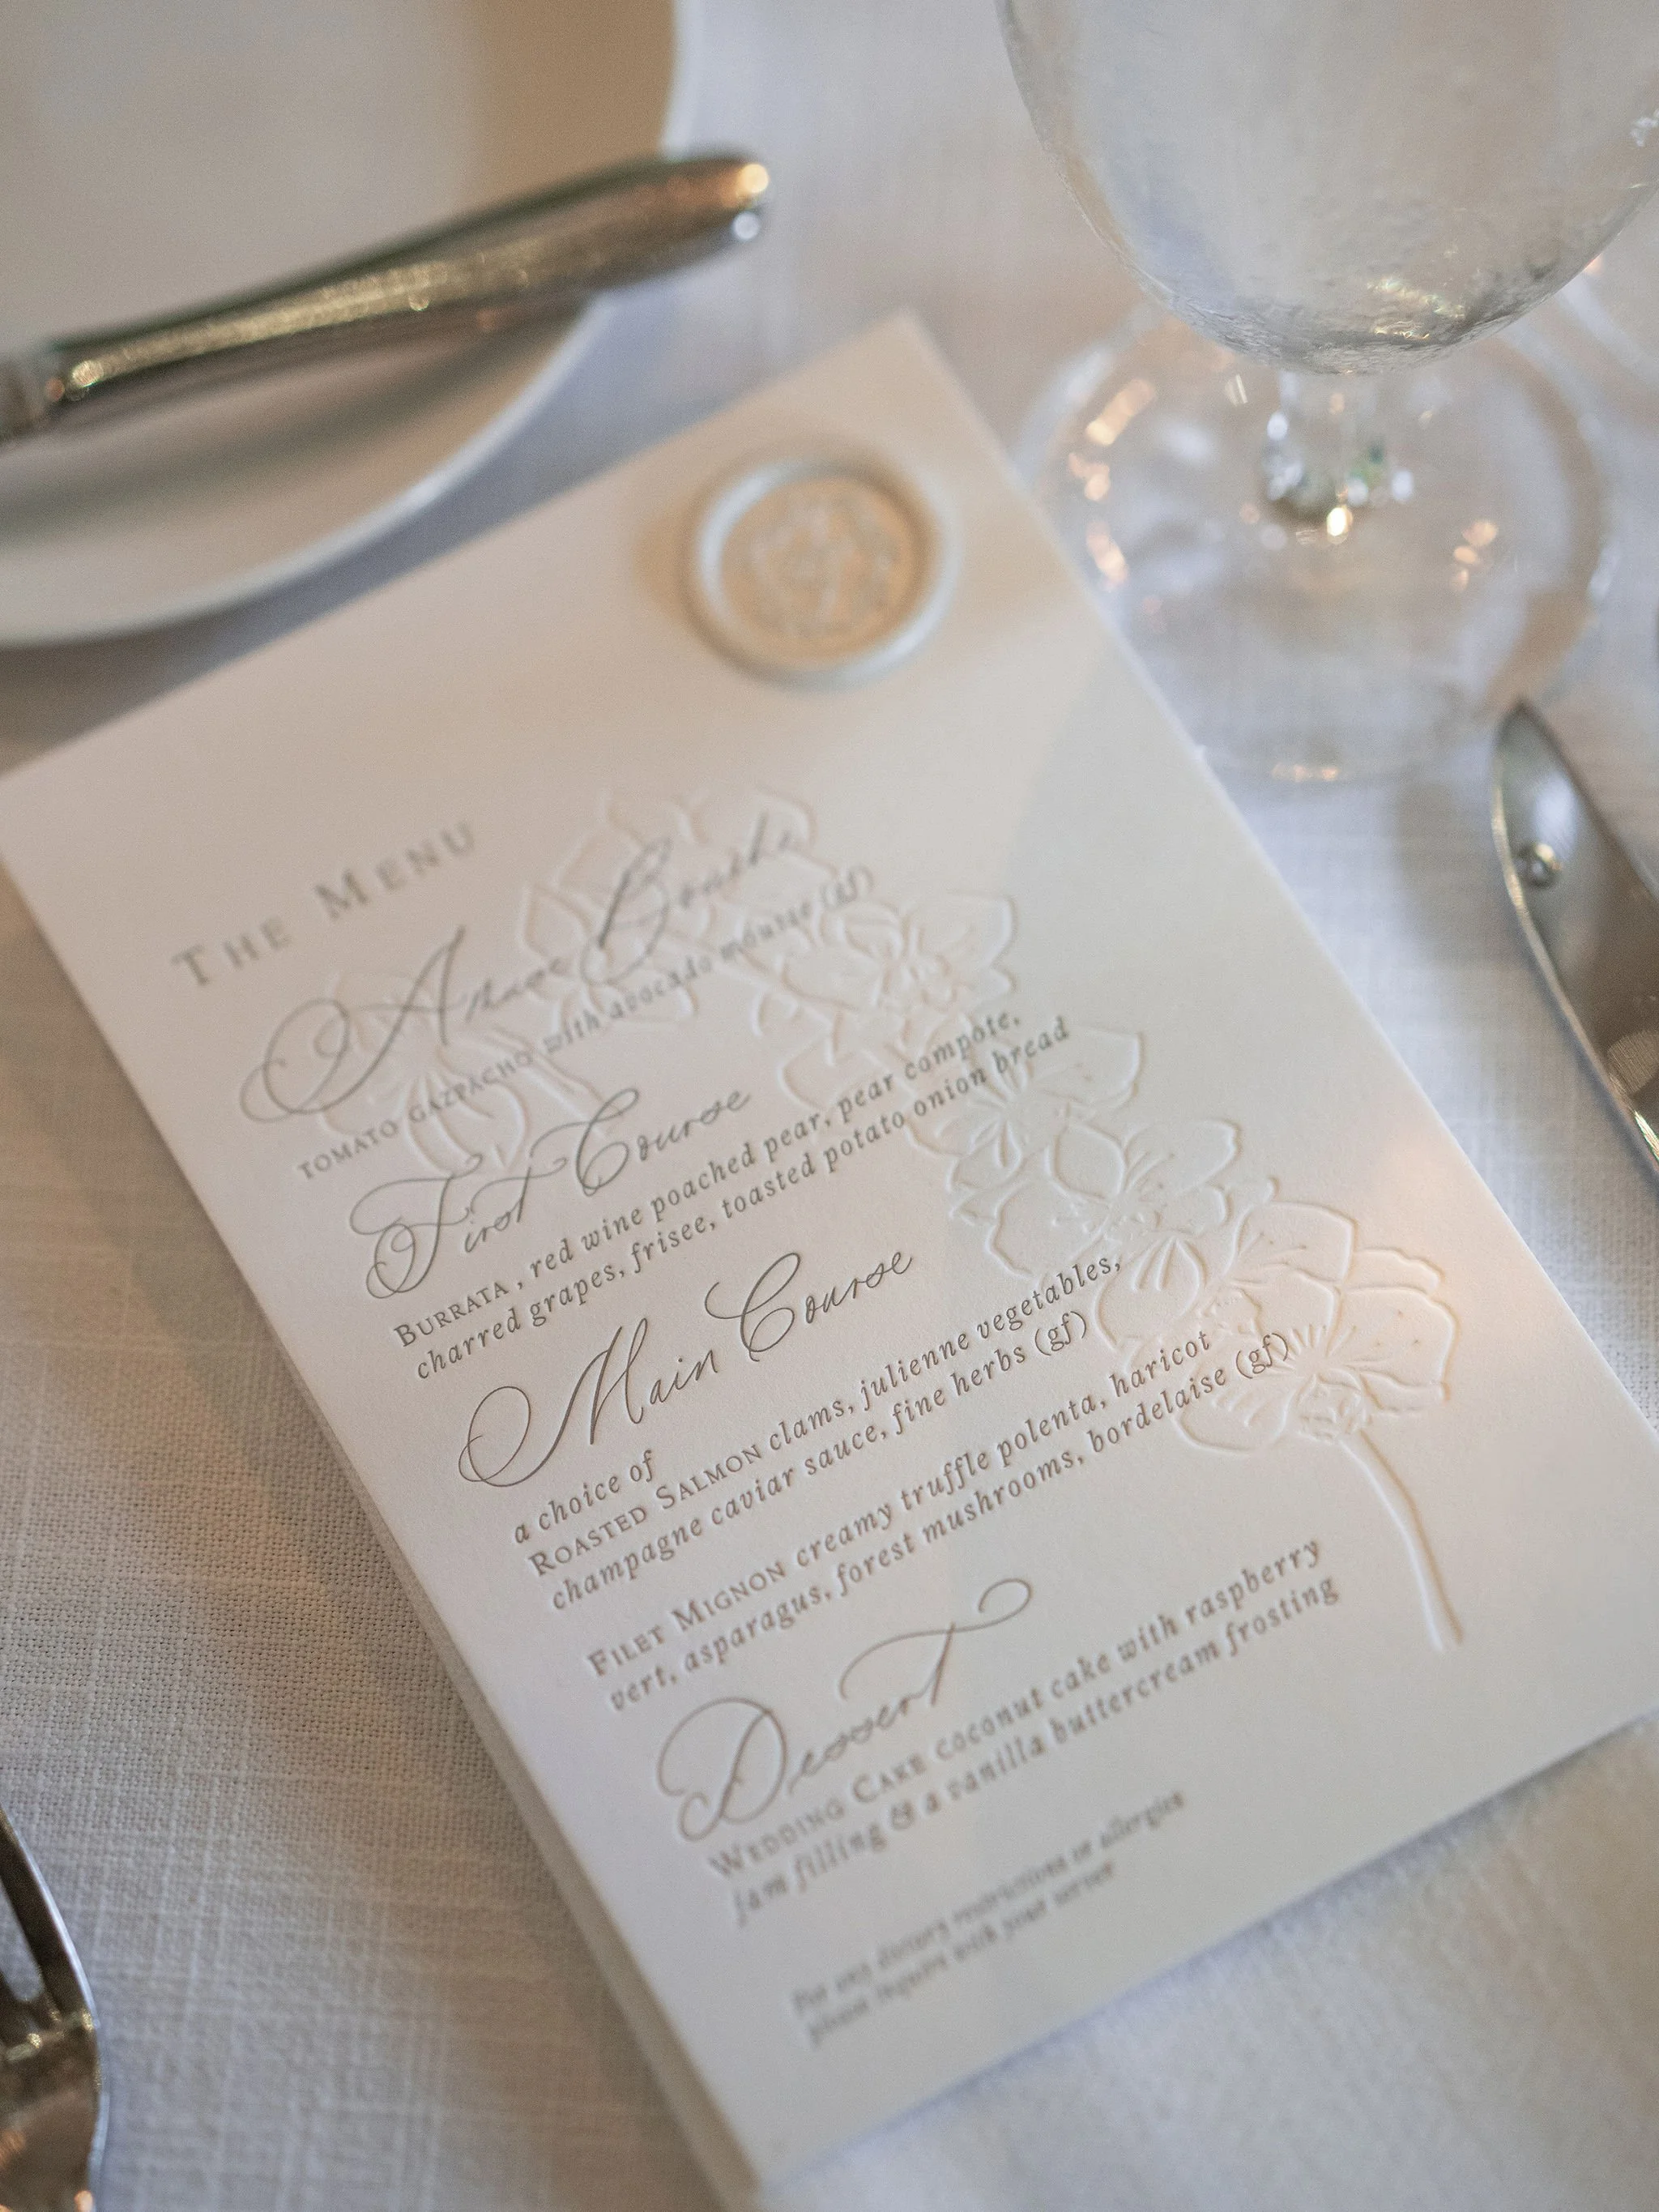 The Menu
Amuse Bouche
Tomato gazpacho with avocado mousse (gf)
First Course
Burrata , red wine poached pear, pear compote,
charred grapes, frisee, toasted potato onion bread
Main Course
a choice of
Roasted Salmon clams, julienne vegetables,
champagne caviar sauce, fine herbs (gf)
Filet Mignon creamy truffle polenta, haricot
vert, asparagus, forest mushrooms, bordelaise (gf)
Dessert
Wedding Cake coconut cake with raspberry
jam filling & a vanilla buttercream frosting
For any dietary restrictions or allergies
please inquire with your server